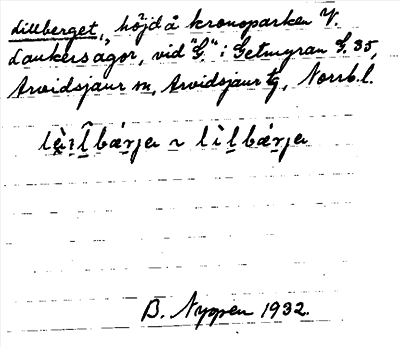 Lillberget, höjd å kronoparken V.
Laukersågor, vid "G." i Getmyran G. 35,
Arvidsjaur sn, Arvidsjaur tg, Norrb. l.
B. Nygren 1932.